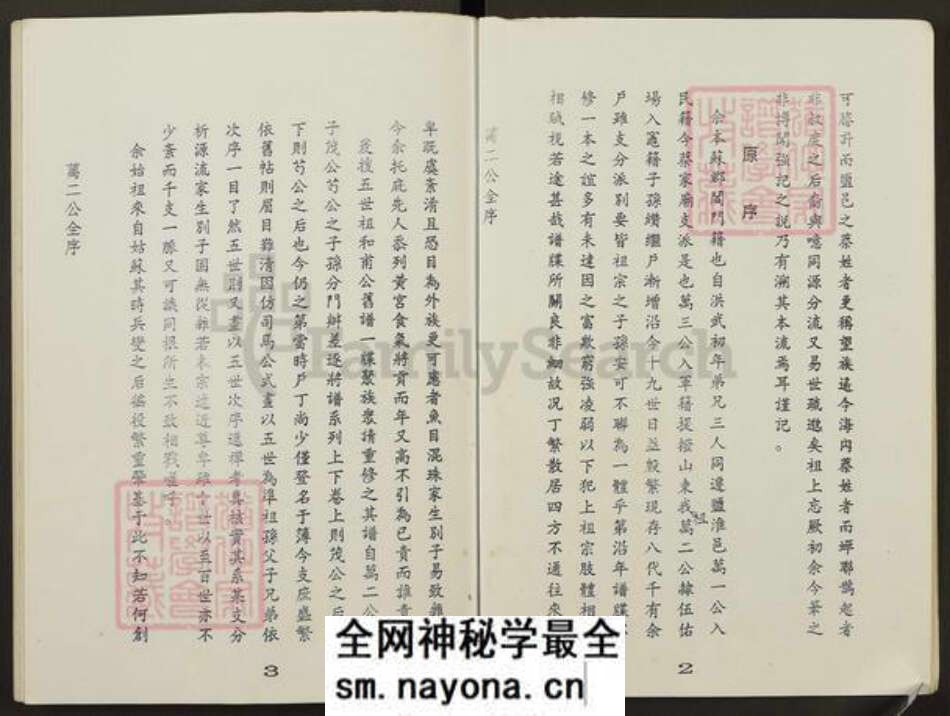 可勝升而鹽邑之蔡姓者更稱望族遍今海內蔡姓者而蟬聯鵲起者
非叔度之后裔與噫同源分流又易世疏邈矣祖上忘厥初余今筆之
非博聞強記之說乃有溯其本流焉耳謹記。
原序
余本蘇鄉閶門籍也自洪武初年弟兄三人同遷鹽淮邑萬一公入
民籍今蔡家廟支派是也萬三公入軍籍提撥山東我萬二公隸伍佑
場入竈籍子孫纘繼戶漸增沿今十九世日益般繁現存八代千有余
戶雖支分派別要皆祖宗之子孫安可不聯為一體乎第沿年譜牒
修一本之誼多有未達因之富欺窮強凌弱以下犯上祖宗肢體相
相賊視若途甚哉譜牒所關良非細故况丁繁散居四方不通往來
祖
萬二公全序
2
卑既虞紊淆且恐目為外族更可慮者魚目混珠家生別子易致
今余托庇先人忝列黃宮食氣將貢而年又高不引為己責而誰責
爰搜五世祖和甫公舊譜一牒聚族衆請重修之其譜自萬二公
子茂公芍公之子孫分門辦差逐將譜系列上下卷上則茂公之后
下則芍公之后也今仍之第當時戶丁尚少僅登名于簿今支庶盛繁
依舊帖則眉目難清因仿司馬公式畫以五世為準祖孫父子兄弟依
次序一目了然五世則又畫以五世次序遞禪考其核實其系某支分
析源流家生別子固無從雜若本宗遠近尊卑雖十世以至百世亦不
少紊而千支一脈又可識同根所生不致相戕
余始祖來自姑蘇其時兵燹之后徭役繁重肇基于此不知若何創
萬二公全序
3
FamilySearch
全网神秘学最全
sm.nayona.cn